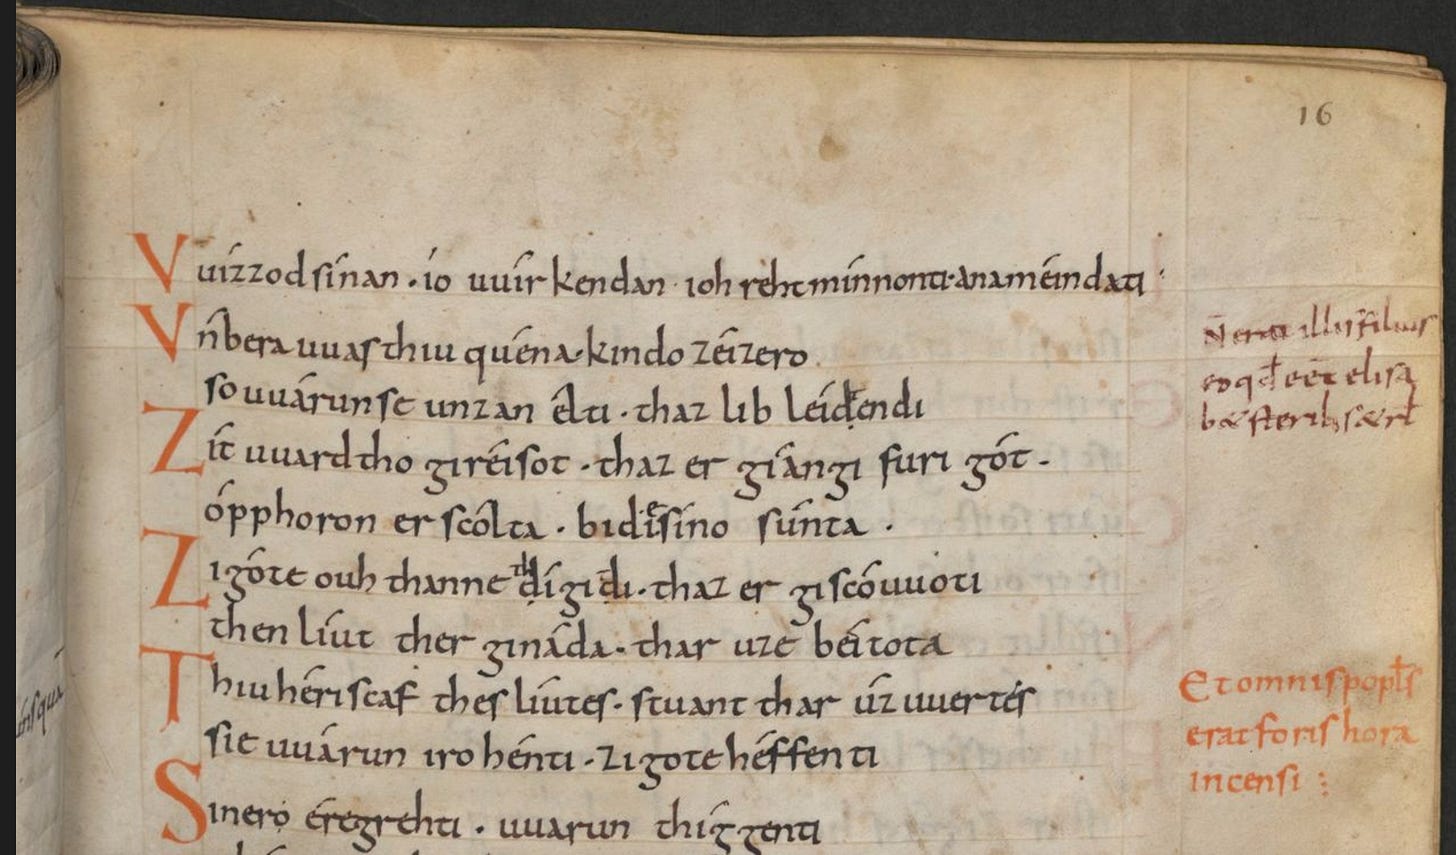 16
Vuízzod sínan · ío uuírkendan ioh reht mínnonti · ana méindati
Vńbera uuas thiu quéna · kindo zéizero
so uuárun se unzan élti · thaz lib léidendi
Zít uuard tho giréisot · thaz er giángi furi gót ·
ópphoron er scólta · bi die síno súnta ·
Zi góte ouh thanne thígiti · thaz er giscóuuoti
then líut ther gináda · thar uze béitota
Thiu hériscaf thes líutes · stuant thar úzuuertes
sie uuárun iro hénti · zi gote héffenti
Sinero éregrehti · uuarun thíggenti
N̄ erat illis filius
eo qd̄ eēt elisa
bæ steril
Et omnis popl̄s
erat foris hora
incensi :